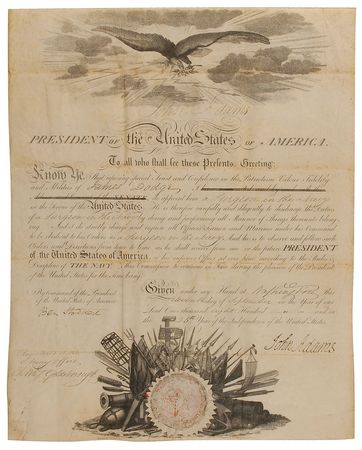 John Adams
PRESIDENT OF the United States OF AMERICA.
To all who shall see these Presents, Greeting:
Know Ye, That reposing special Trust and Confidence in the Patriotism, Valour, Fidelity
and Abilities of James Dodge, I
do appoint him a Surgeon in the Navy
in the Service of the United States. He is therefore carefully and diligently to discharge the Duties
of a Surgeon in the Navy by doing and performing all Manner of Things thereunto belong-
ing. And I do strictly charge and require all Officers, Seamen and Marines under his Command
to be Obedient to his Orders as Surgeon in the Navy. And he is to observe and follow such
Orders and Directions from time to time as he shall receive from me or the future PRESIDENT
of the United States of America, or his superior Officer set over him, according to the Rules &
Discipline of THE NAVY. This Commission to continue in force during the pleasure of the President
of the United States for the time being.
Given under my Hand at
By Command of the President
of the United States of America
day of September in the Year of our
Lord One thousand eight hundred
and in the Year of the Independence of the United States.
Ben Stoddert
John Adams